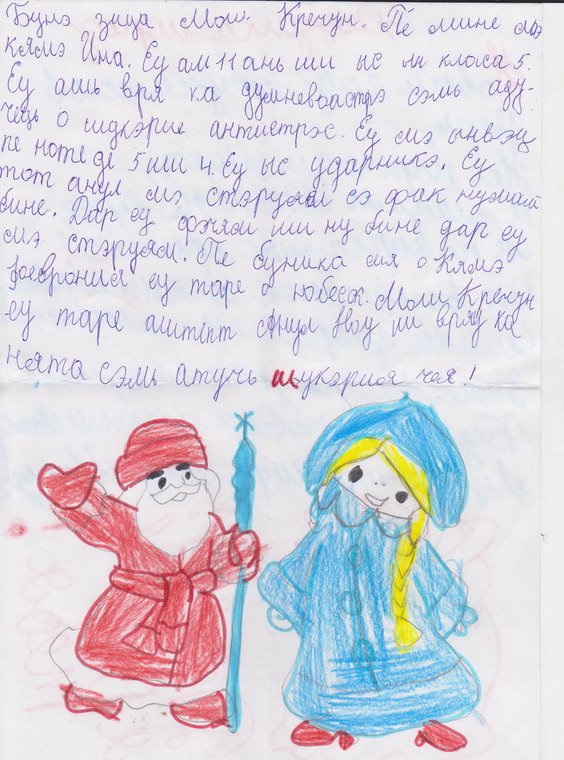 Бунэ зица Мош Кречун. Пе мине мэ
кямэ Ина. Еу ам 11 ань ши ыс ын класа 5.
Еу ашь вря ка думневоастрэ сэмь аду-
чець о жукэрие антистрэс. Еу мэ ынвэц
пе ноте де 5 ши 4. Еу ыс ударникэ. Еу
тот анул мэ стэруям сэ фак нумай
бине. Дар еу фэчям ши ну бине дар еу
мэ стэруям. Пе буника мя о кямэ
Феврония еу таре о юбеск. Мош Кречун
еу таре аштепт Анул Ноу ши вряу ка
ноята сэмь атучь жукэрия чея!